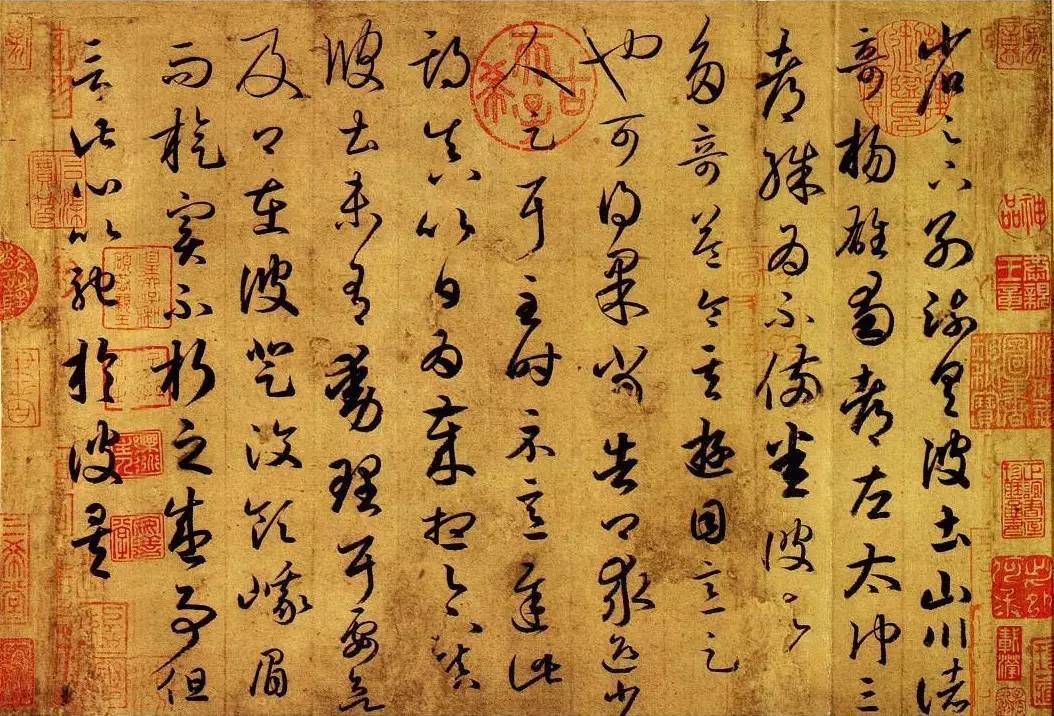 省足下別疏具彼土山川諸
奇楊雄蜀都左太沖三
都殊為不備悉彼故為
多奇益令其遊目意足
也可得果當告卿求迎少
人足耳至時示意遲此
期真以日為歲想足下鎮
彼土未有動理耳要欲
及卿在彼登汶領峨眉
而旋實不朽之盛事但
言此心以馳於彼矣
古希天子
神品